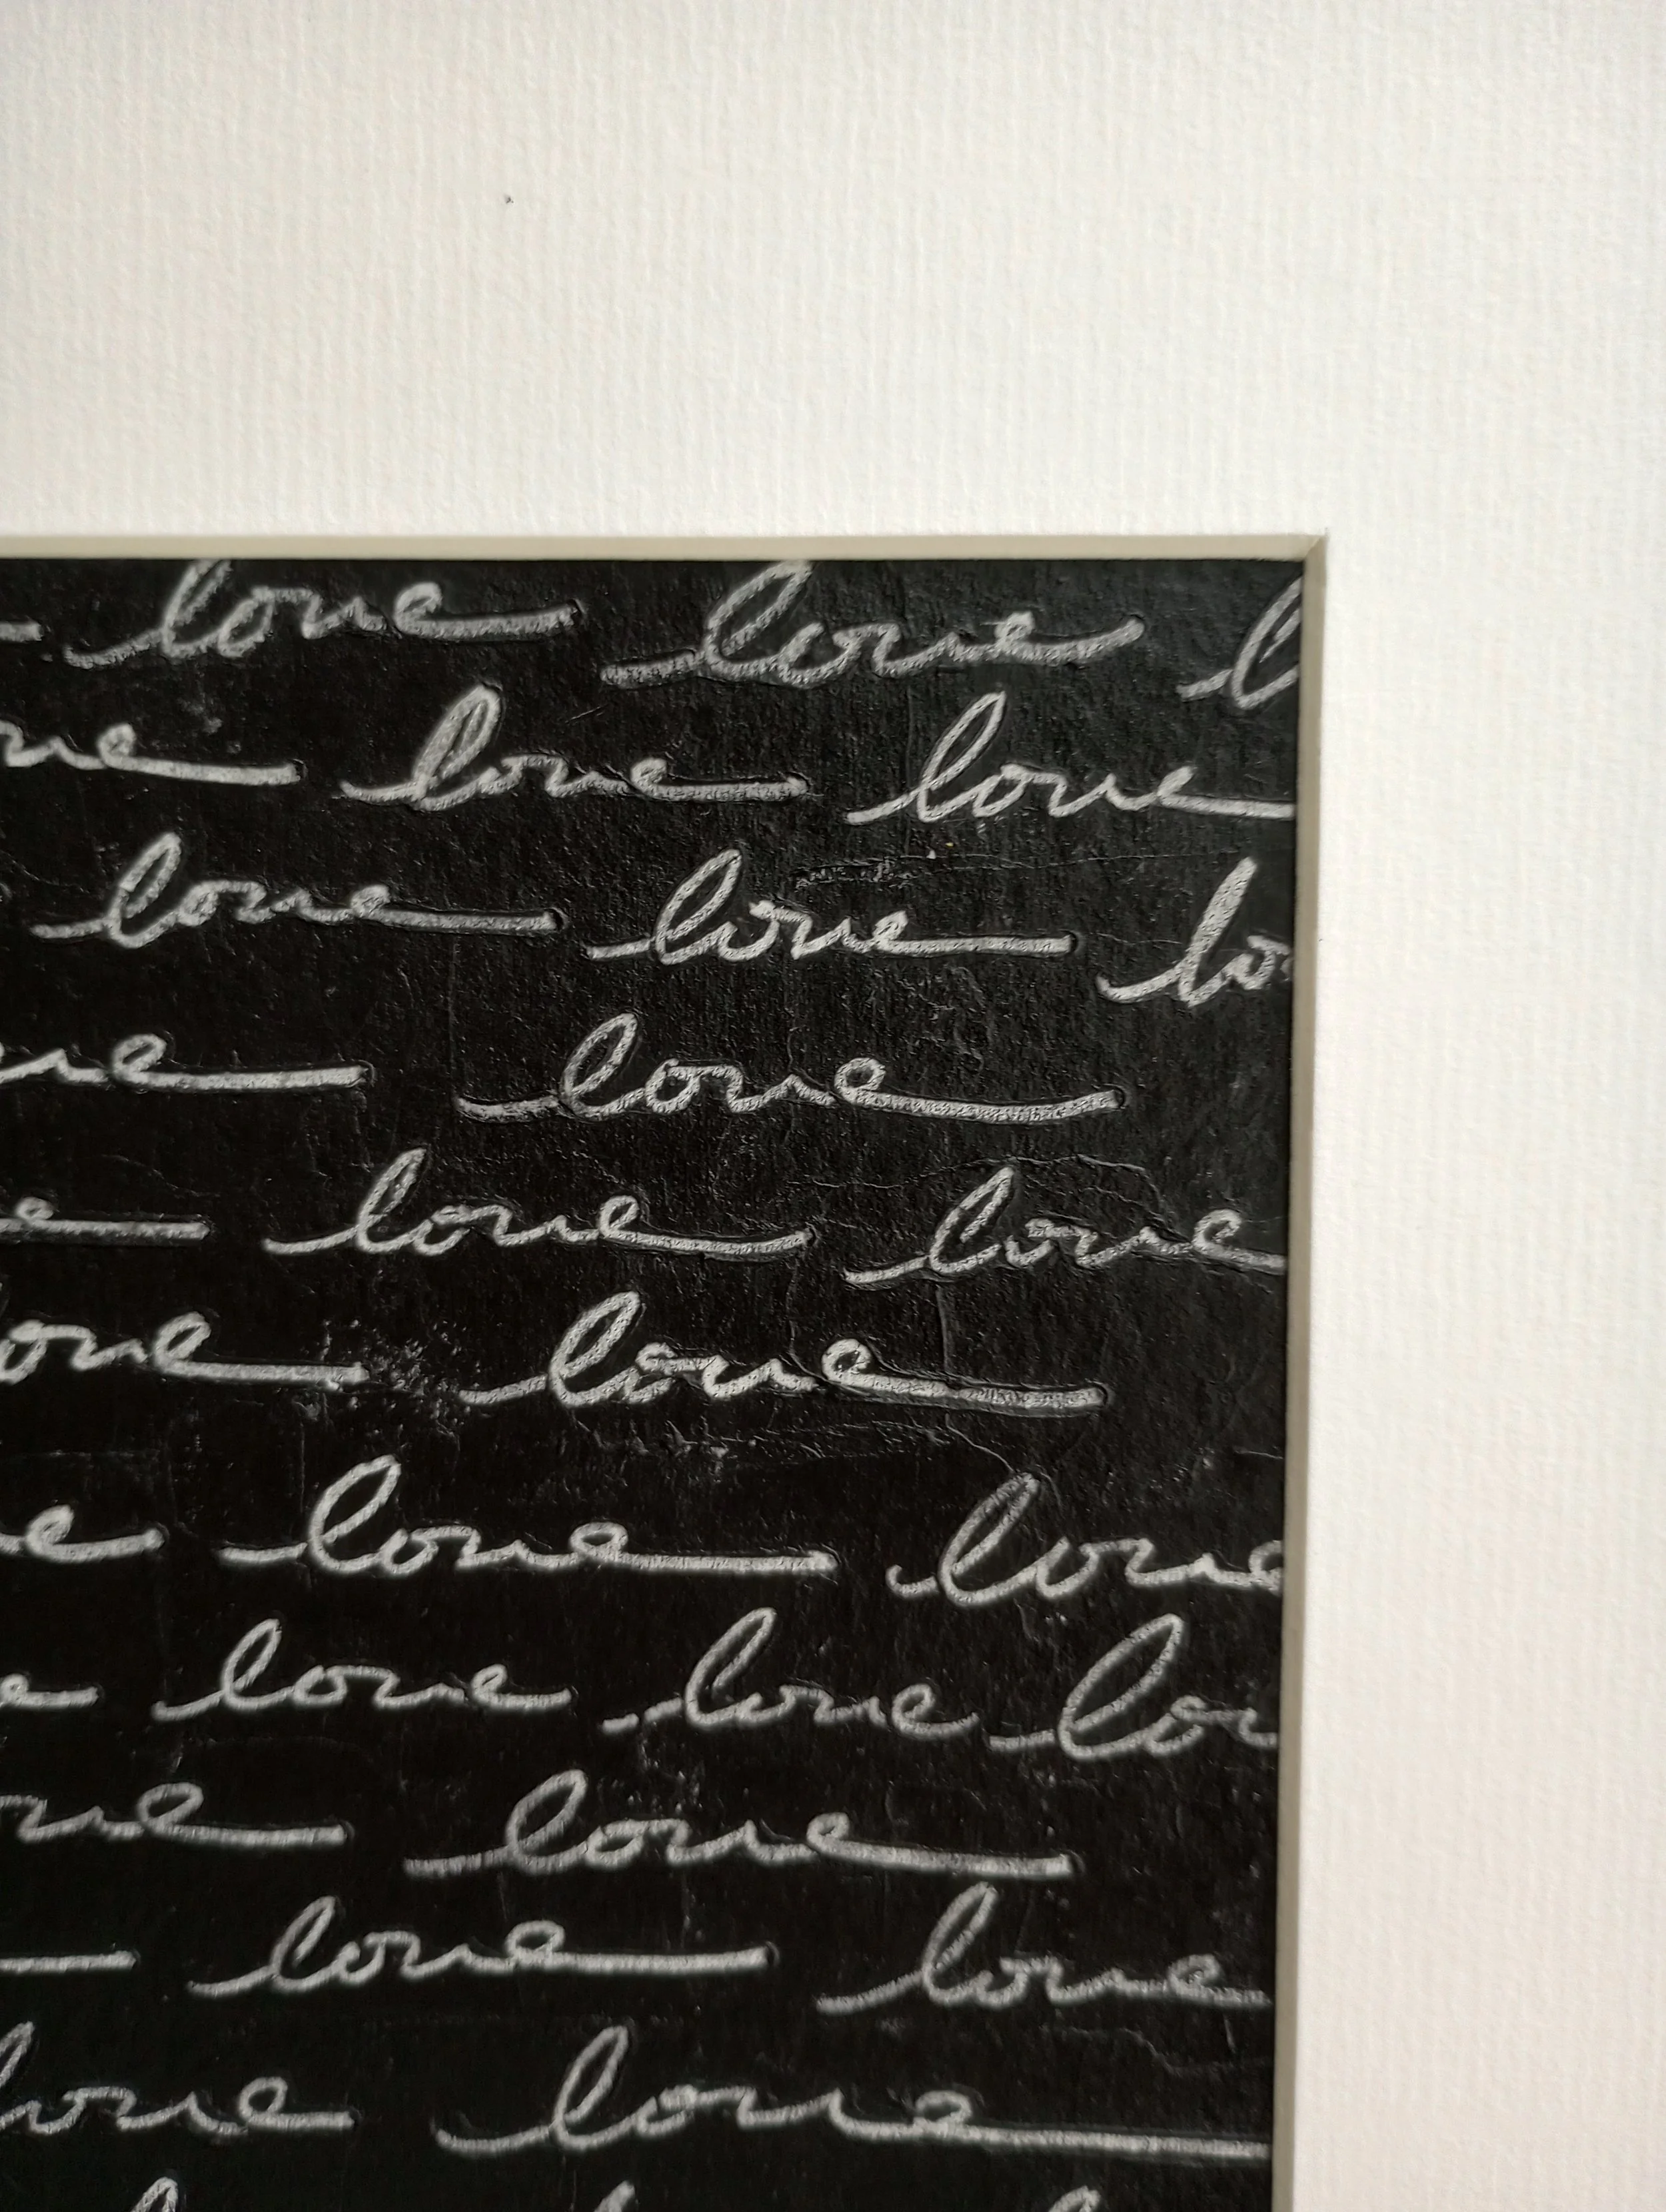 love love l
ove love love
love love lo
ove love
e love love
love love
e love love
e love love lov
ove love
love love
love love